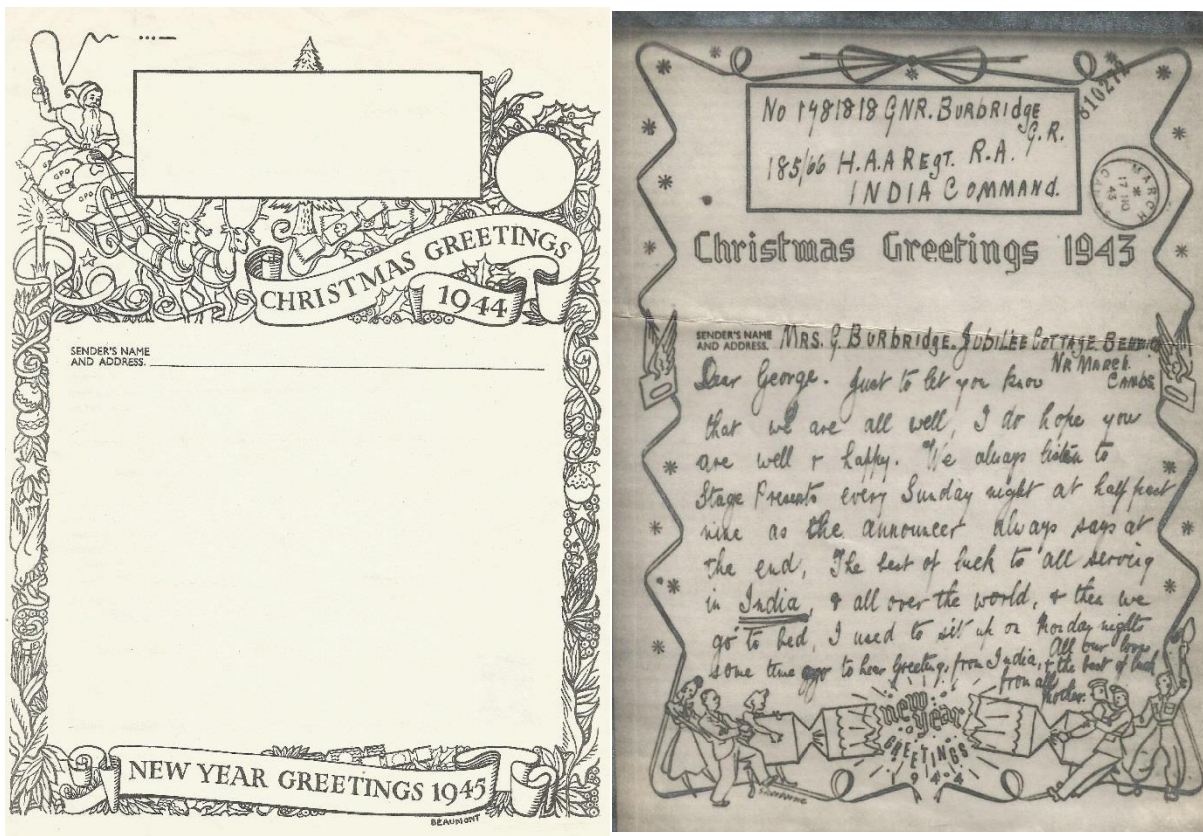 CHRISTMAS GREETINGS
1944
SENDER'S NAME
AND ADDRESS.
NEW YEAR GREETINGS 1945
BEAUMONT
GPO
GPO
GPO
No 1481818 GNR. BURBRIDGE
G.R.
185/66 H.A.A REGT. R.A.
INDIA COMMAND.
MARCH
17 NO
43
Christmas Greetings 1943
SENDER'S NAME
AND ADDRESS. MRS. G. BURBRIDGE. JUBILEE COTTAGE
NR MARCH.
CAMBS
Dear George. Just to let you know
that we are all well, I do hope you
are well & happy. We always listen to
Stage Presents every Sunday night at half past
nine as the announcer always says at
the end, The best of luck to all serving
in India, & all over the world, & then we
go to bed, I used to sit up on Monday nights
some time ago to hear Greetings from India,
All our love
& the best of luck
from all
Mother.
new
year
GREETINGS
1944